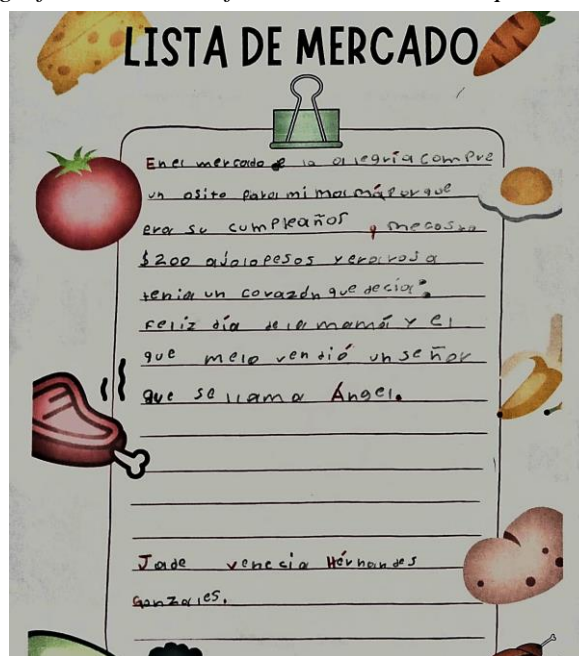 LISTA DE MERCADO
En el mercado de la alegría compre
un osito para mi mamá porque
era su cumpleaños y me costo
$200 pesos y era roja
tenia un corazón que decia:
Feliz día de la mamá y el
que me lo vendió un señor
que se llama Ángel.
Jade venecia Hérnandes
Gonzales.